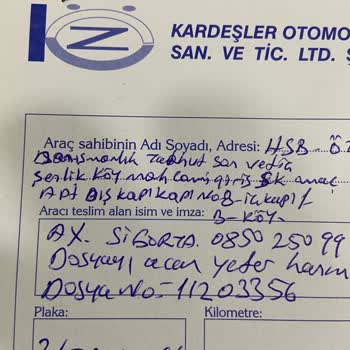 KARDEŞLER OTOMO
SAN. VE TİC. LTD. Ş
Araç sahibinin Adı Soyadı, Adresi: HSB-Öz
Danışmanlık Taahhut san ve tic
Şenlik köy mah cami giriş sk
Apt Dış kapı kapı No B- iç kapı 1
Aracı teslim alan isim ve imza: B-Köy
AX. SİGORTA. 0850 250 99
Dosyayı açan yeter hanım
Dosya No=11203356
Plaka:
Kilometre: